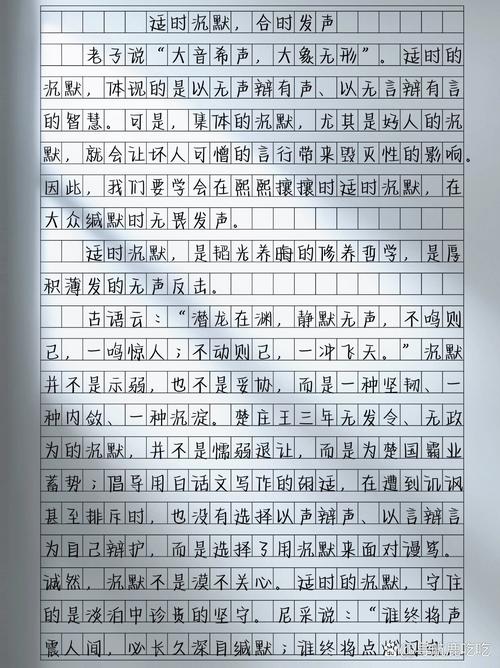 适时沉默，合时发声
老子说“大音希声，大象无形”。适时的
沉默，体现的是以无声辩有声、以无言辩有言
的智慧。可是，集体的沉默，尤其是好人的沉
默，就会让坏人可憎的言行带来毁灭性的影响。
因此，我们要学会在熙熙攘攘时适时沉默，在
大众缄默时无畏发声。
适时沉默，是韬光养晦的修养哲学，是厚
积薄发的无声反击。
古语云：“潜龙在渊，静默无声，不鸣则
已，一鸣惊人；不动则已，一冲飞天。”沉默
并不是示弱，也不是妥协，而是一种坚韧、一
种内敛、一种沉淀。楚庄王三年无发令、无政
为的沉默，并不是懦弱退让，而是为楚国霸业
蓄势；倡导用白话文写作的胡适，在遭到讥讽
甚至排斥时，也没有选择以声辩声、以言辩言
为自己辩护，而是选择了用沉默来面对谩骂。
诚然，沉默不是漠不关心。适时的沉默，守住
的是淡泊中珍贵的坚守。尼采说：“谁终将声
震人间，必长久深自缄默；谁终将点